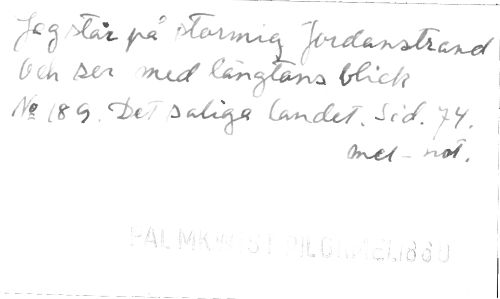 Jag står på stormig Jordanstrand
och ser med längtans blick
№ 189. Det saliga landet. Sid. 74.
mel - not.
PALMKVIST